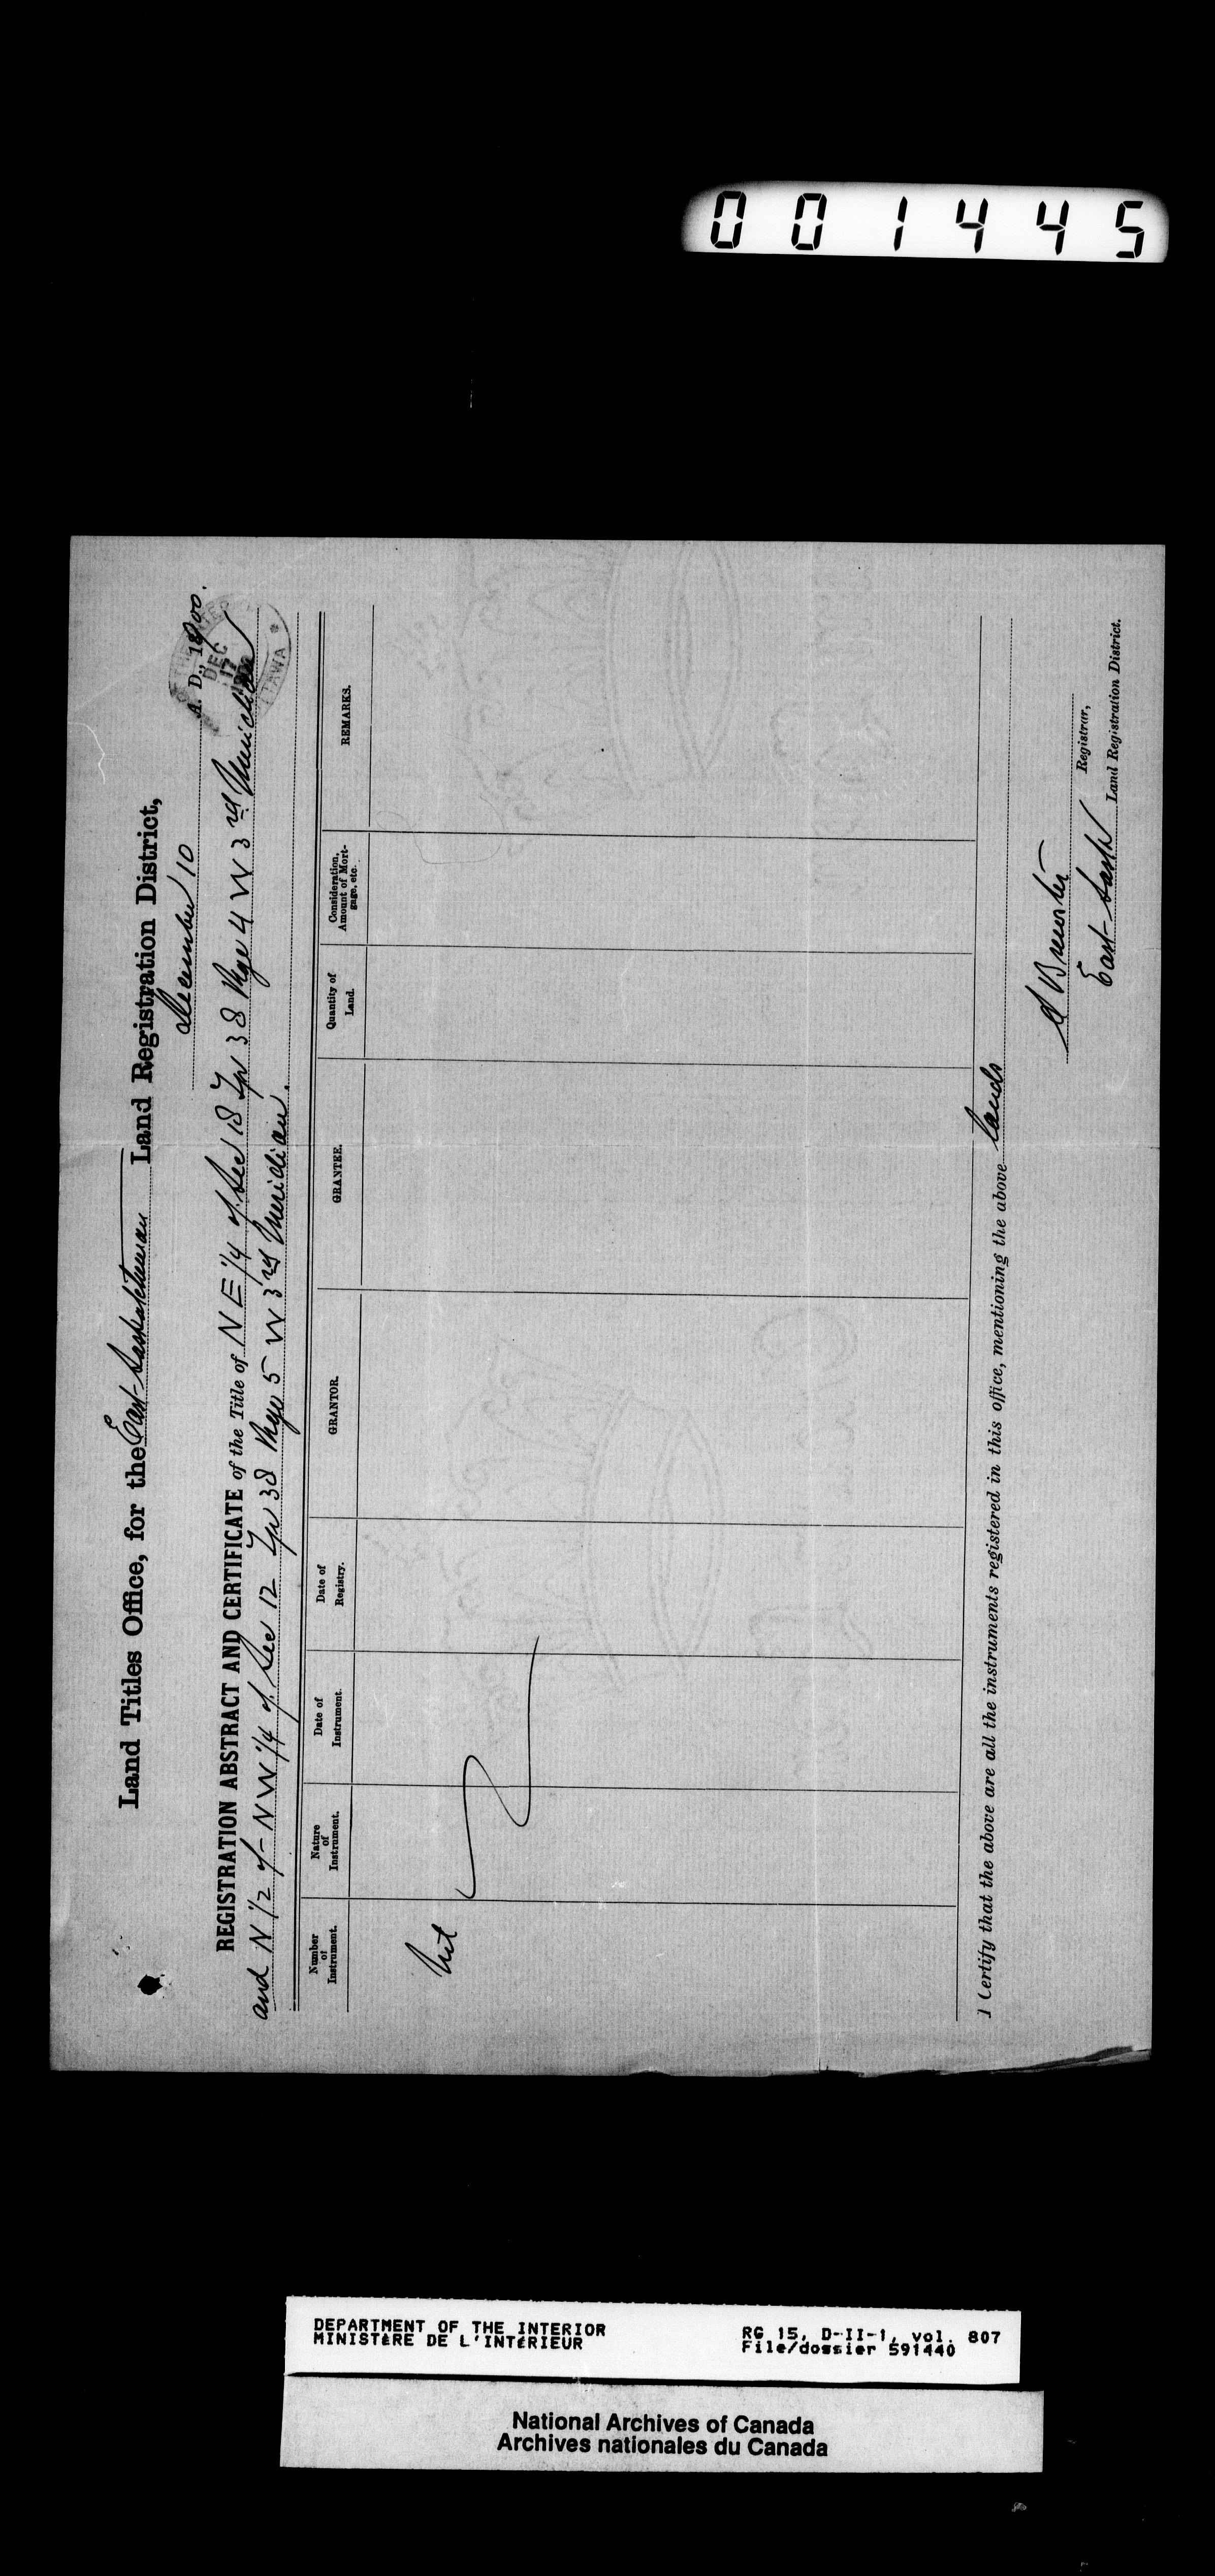 001445
Land Titles Office, for the East Saskatchewan Land Registration District,
December 10 A. D., 1900.
DEC 17 1900
REGISTRATION ABSTRACT AND CERTIFICATE of the Title of N E 1/4 of Sec 18 Tp 38 Rge 4 W 3rd Meridian
and N 1/2 of N W 1/4 of Sec 12 Tp 38 Rge 5 W 3rd Meridian.
Number of Instrument.
Nature of Instrument.
Date of Instrument.
Date of Registry.
GRANTOR.
GRANTEE.
Quantity of Land.
Consideration, Amount of Mortgage, etc.
REMARKS.
I Certify that the above are all the instruments registered in this office, mentioning the above lands
Brewster
Registrar,
East Sask Land Registration District.
DEPARTMENT OF THE INTERIOR
MINISTÈRE DE L'INTÉRIEUR
RG 15, D-II-1, vol. 807
File/dossier 591440
National Archives of Canada
Archives nationales du Canada